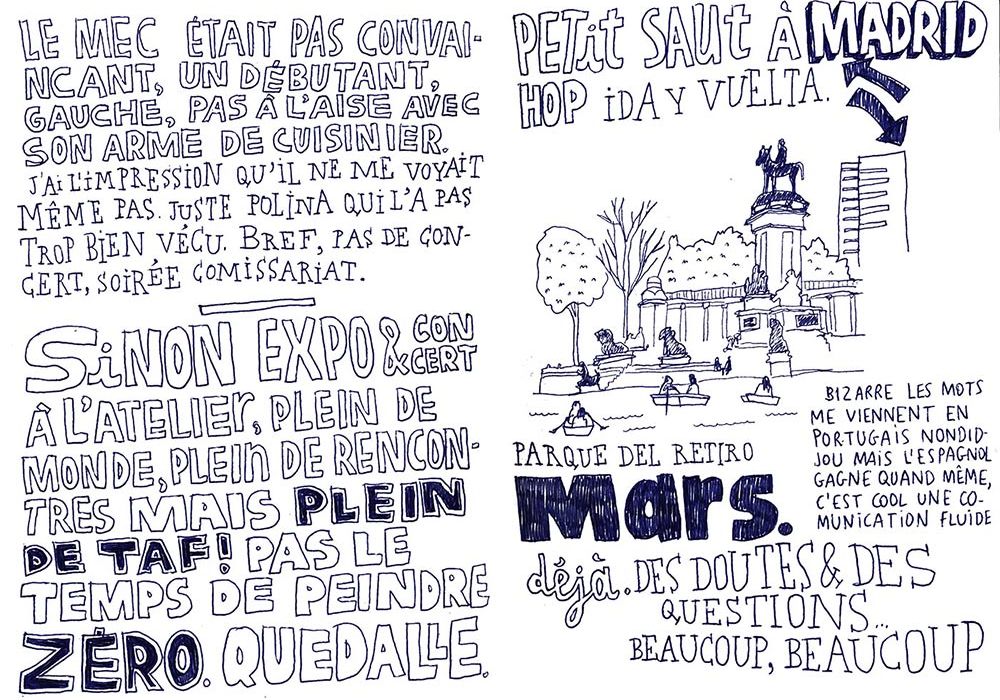 LE MEC ÉTAIT PAS CONVAI-
NCANT, UN DÉBUTANT,
GAUCHE, PAS À L'AISE AVEC
SON ARME DE CUISINIER.
J'AI L'IMPRESSION QU'IL NE ME VOYAIT
MÊME PAS. JUSTE POLINA QUI L'A PAS
TROP BIEN VÉCU. BREF, PAS DE CON-
CERT, SOIRÉE COMISSARIAT.
SINON EXPO & CON
CERT
À L'ATELIER, PLEIN DE
MONDE, PLEIN DE RENCON-
TRES MAIS PLEIN
DE TAF! PAS LE
TEMPS DE PEINDRE
ZÉRO. QUEDALLE.
PETIT SAUT À MADRID
HOP IDA Y VUELTA.
BIZARRE LES MOTS
ME VIENNENT EN
PORTUGAIS NONDID-
JOU MAIS L'ESPAGNOL
GAGNE QUAND MÊME,
C'EST COOL UNE CO-
MUNICATION FLUIDE
PARQUE DEL RETIRO
Mars.
déjà. DES DOUTES & DES
QUESTIONS...
BEAUCOUP, BEAUCOUP